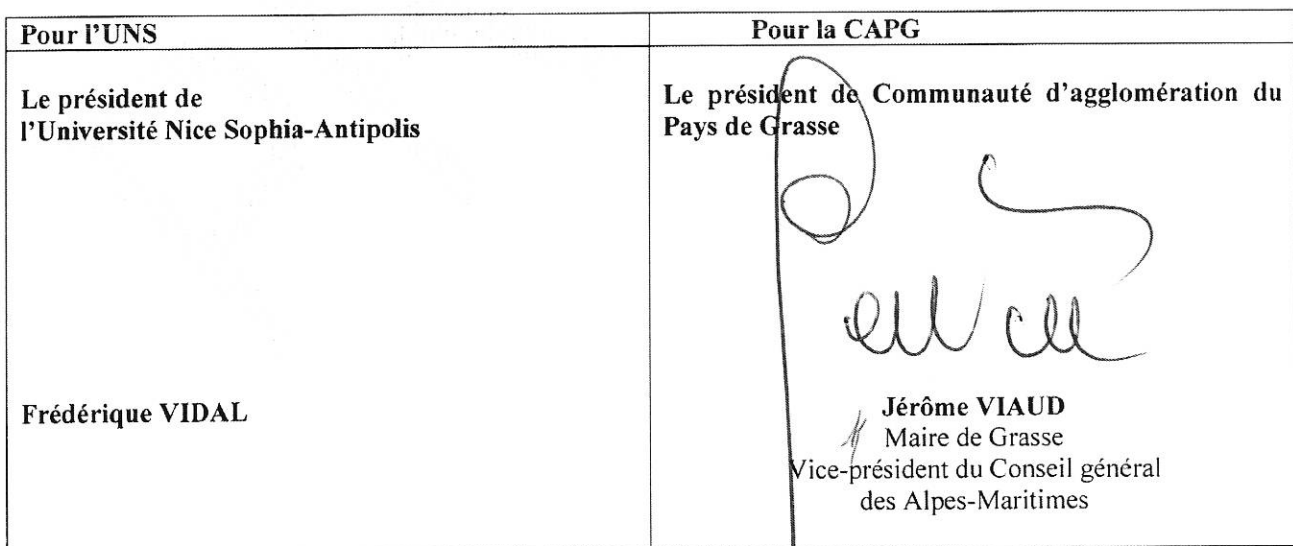 Pour l'UNS
Le président de
l'Université Nice Sophia-Antipolis
Frédérique VIDAL
Pour la CAPG
Le président de Communauté d'agglomération du
Pays de Grasse
Jérôme VIAUD
Maire de Grasse
Vice-président du Conseil général
des Alpes-Maritimes